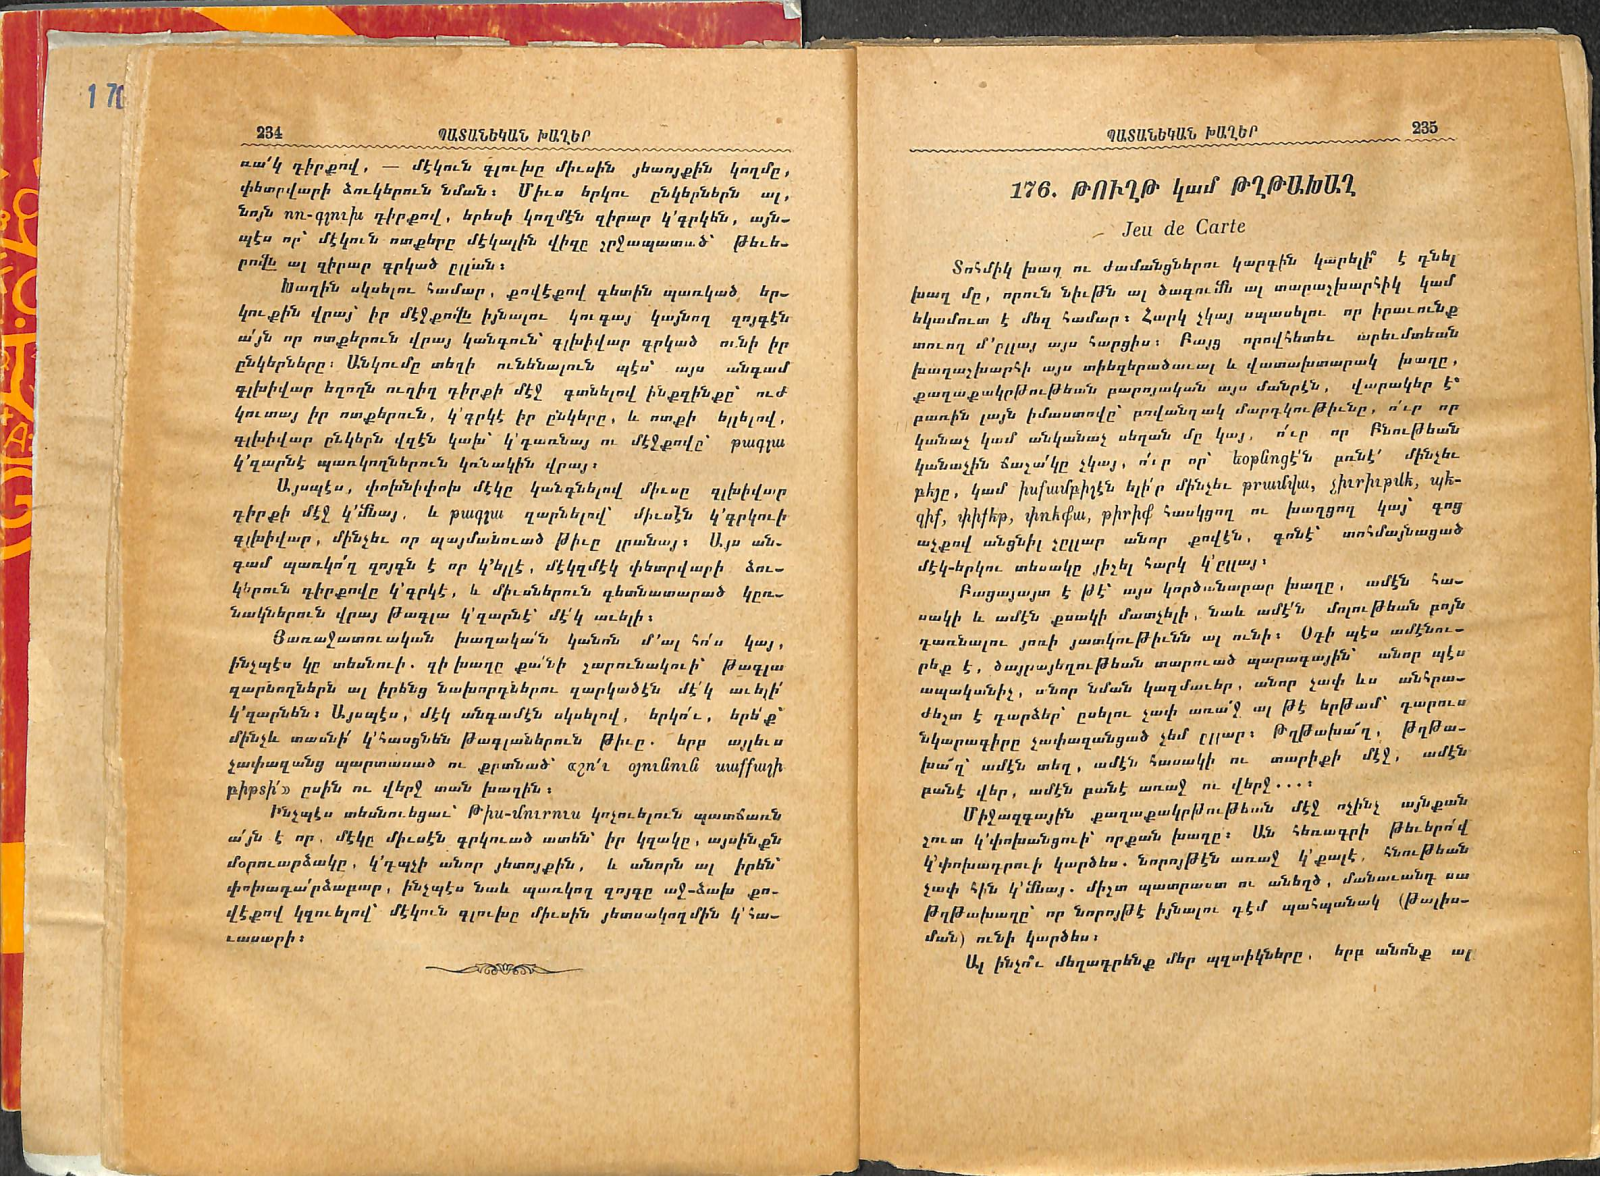 170
234 ՊԱՏԱՆԵԿԱՆ ԽԱՂԵՐ
ռա՛կ դիրքով, — մէկուն գլուխը միւսին յետոյքին կողմը,
փետրվարի ձուկերուն նման։ Միւս երկու ընկերներն ալ,
նոյն ոռ-գլուխ դիրքով, երեսի կողմէն զիրար կ՚գրկեն, այն-
պէս որ՝ մէկուն ոտքերը մէկալին վիզը շրջապատած՝ թեւե-
րովն ալ զիրար գրկած ըլլան։
Խաղին սկսելու համար, քովէքով գետին պառկած եր-
կուքին վրայ՝ իր մէջքովն իյնալու կուգայ կայնող զոյգէն
ա՛յն որ ոտքերուն վրայ կանգուն՝ գլխիվար գրկած ունի իր
ընկերները։ Անկումը տեղի ունենալուն պէս՝ այս անգամ
գլխիվար եղողն ուղիղ դիրքի մէջ գտնելով ինքզինքը՝ ուժ
կուտայ իր ոտքերուն, կ՚գրկէ իր ընկերը, և ոտքի ելլելով,
գլխիվար ընկերն վզէն կախ՝ կ՚դառնայ ու մէջքովը՝ թագլա
կ՚զարնէ պառկողներուն կռնակին վրայ։
Այսպէս, փոխնիփոխ մէկը կանգնելով միւսը գլխիվար
դիրքի մէջ կ՚մնայ, և թագլա զարնելով՝ միւսէն կ՚գրկուի
գլխիվար, մինչեւ որ պայմանուած թիւը լրանայ։ Այս ան-
գամ պառկո՛ղ զոյգն է որ կ՚ելլէ, մէկզմէկ փետրվարի ձու-
կերուն դիրքովը կ՚գրկէ, և միւսներուն գետնատարած կըռ-
նակներուն վրայ թագլա կ՚զարնէ՝ մէ՛կ աւելի։
Յառաջատուական խաղակա՛ն կանոն մ՚ալ հո՛ս կայ,
ինչպէս կը տեսնուի. զի խաղը քա՛նի շարունակուի՝ թագլա
զարնողներն ալ իրենց նախորդներու զարկածէն մէ՛կ աւելի՛
կ՚զարնեն։ Այսպէս, մէկ անգամէն սկսելով, երկո՛ւ, երե՛ք՝
մինչև տասնի՛ կ՚հասցնեն թագլաներուն թիւը. երբ այլեւս
չափազանց պարտասած ու քրտնած՝ «շո՛ւ օյունուն սաֆֆաշի
թիթտի՛» ըսին ու վերջ տան խաղին։
Ինչպէս տեսնուեցաւ՝ Թիս-մուրուս կոչուելուն պատճառն
ա՛յն է որ, մէկը միւսէն գրկուած ատեն՝ իր կզակը, այսինքն
մօրուարձակը, կ՚դպչի անոր յետոյքին, և անորն ալ իրեն՝
փոխադա՛րձաբար, ինչպէս նաև պառկող զոյգը աջ-ձախ քո-
վէքով կզուելով՝ մէկուն գլուխը միւսին յետսակողմին կ՚հա-
ւասարի։
ՊԱՏԱՆԵԿԱՆ ԽԱՂԵՐ 235
176. ԹՈՒՂԹ կամ ԹՂԹԱԽԱՂ
Jeu de Carte
Տոհմիկ խաղ ու ժամանցներու կարգին կարելի՞ է դնել
խաղ մը, որուն նիւթն ալ ծագումն ալ տարաշխարհիկ կամ
եկամուտ է մեզ համար։ Հարկ չկայ սպասելու որ իրաւունք
տուող մ՚ըլլայ այս հարցիս։ Բայց որովհետեւ արեւմտեան
խաղաշխարհի այս տիեզերածաւալ և վատախտարակ խաղը,
քաղաքակրթութեան բարոյական այս մանրէն, վարակեր է՝
բառին լայն իմաստովը՝ բովանդակ մարդկութիւնը, ո՛ւր որ
կանաչ կամ անկանաչ սեղան մը կայ, ո՛ւր որ Բնութեան
կանաչին ճաշա՛կը չկայ, ո՛ւր որ՝ եօթնոցէ՛ն բռնէ՛ մինչեւ
թէյը, կամ իսփամբիլէն ելի՛ր մինչեւ թրամվա, չիւրիւթմե, պե-
զիք, փիքեթ, փոեքա, թիրիք հասկցող ու խաղցող կայ՝ գոց
աչքով անցնիլ չըլլար անոր քովէն, գոնէ՝ տոհմայնացած
մէկ-երկու տեսակը յիշել հարկ կ՚ըլլայ։
Բացայայտ է թէ՝ այս կործանարար խաղը, ամէն հա-
սակի և ամէն քսակի մատչելի, նաև ամէ՛ն մոլութեան բոյն
դառնալու յոռի յատկութիւնն ալ ունի։ Օղի պէս ամէնու-
րեք է, ծայրայեղութեան տարուած պարագային՝ անոր պէս
ապականիչ, անոր նման կազմաւեր, անոր չափ ևս անհրա-
ժեշտ է դարձեր՝ ըսելու չափ առա՛ջ ալ թէ երթամ՝ դարուս
նկարագիրը չափազանցած չեմ ըլլար։ Թղթախա՛ղ, թղթա-
խա՛ղ՝ ամէն տեղ, ամէն հասակի ու տարիքի մէջ, ամէն
բանէ վեր, ամէն բանէ առաջ ու վերջ...։
Միջազգային քաղաքակրթութեան մէջ ոչինչ այնքան
շուտ կ՚փոխանցուի՝ որքան խաղը։ Ան հեռագրի թեւերո՛վ
կ՚փոխադրուի կարծես. նորոյթէն առաջ կ՚քալէ, հնութեան
չափ հին կ՚մնայ. միշտ պատրաստ ու անեղծ, մանաւանդ սա
Թղթախաղը՝ որ նորոյթէ իյնալու դէմ պահպանակ (թալիս-
ման) ունի կարծես։
Ալ ինչո՞ւ մեղադրենք մեր պզտիկները, երբ անոնք ալ